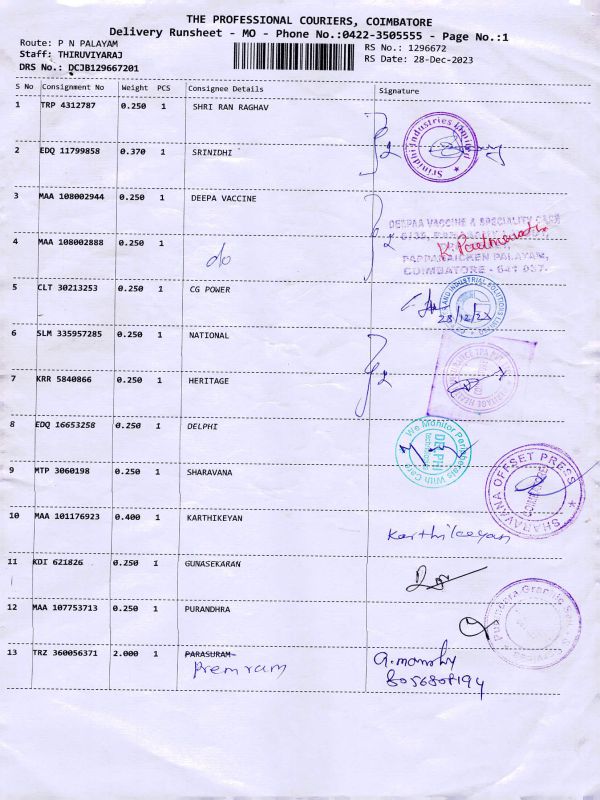 THE PROFESSIONAL COURIERS, COIMBATORE
Delivery Runsheet - MO - Phone No.:0422-3505555 - Page No.:1
Route: P N PALAYAM
RS No.: 1296672
Staff: THIRUVIYARAJ
RS Date: 28-Dec-2023
DRS No.: DCJB129667201
S No Consignment No Weight PCS Consignee Details Signature
1 TRP 4312787 0.250 1 SHRI RAN RAGHAV
Srinidhi Industries Limited
2 EDQ 11799858 0.370 1 SRINIDHI
3 MAA 108002944 0.250 1 DEEPA VACCINE
DEEPAA VACCINE & SPECIALITY CARE
4 MAA 108002888 0.250 1
do
PAPPANAICKEN PALAYAM,
COIMBATORE - 641 037.
5 CLT 30213253 0.250 1 CG POWER
28/12/23
6 SLM 335957285 0.250 1 NATIONAL
7 KRR 5840866 0.250 1 HERITAGE
8 EDQ 16653258 0.250 1 DELPHI
We Monitor Peripherals With Care
DELPHI
9 MTP 3060198 0.250 1 SHARAVANA
SHARAVANA OFFSET PRESS
10 MAA 101176923 0.400 1 KARTHIKEYAN
Karthikeyan
11 KDI 621826 0.250 1 GUNASEKARAN
12 MAA 107753713 0.250 1 PURANDHRA
13 TRZ 360056371 2.000 1 PARASURAM
Premram
8056808194